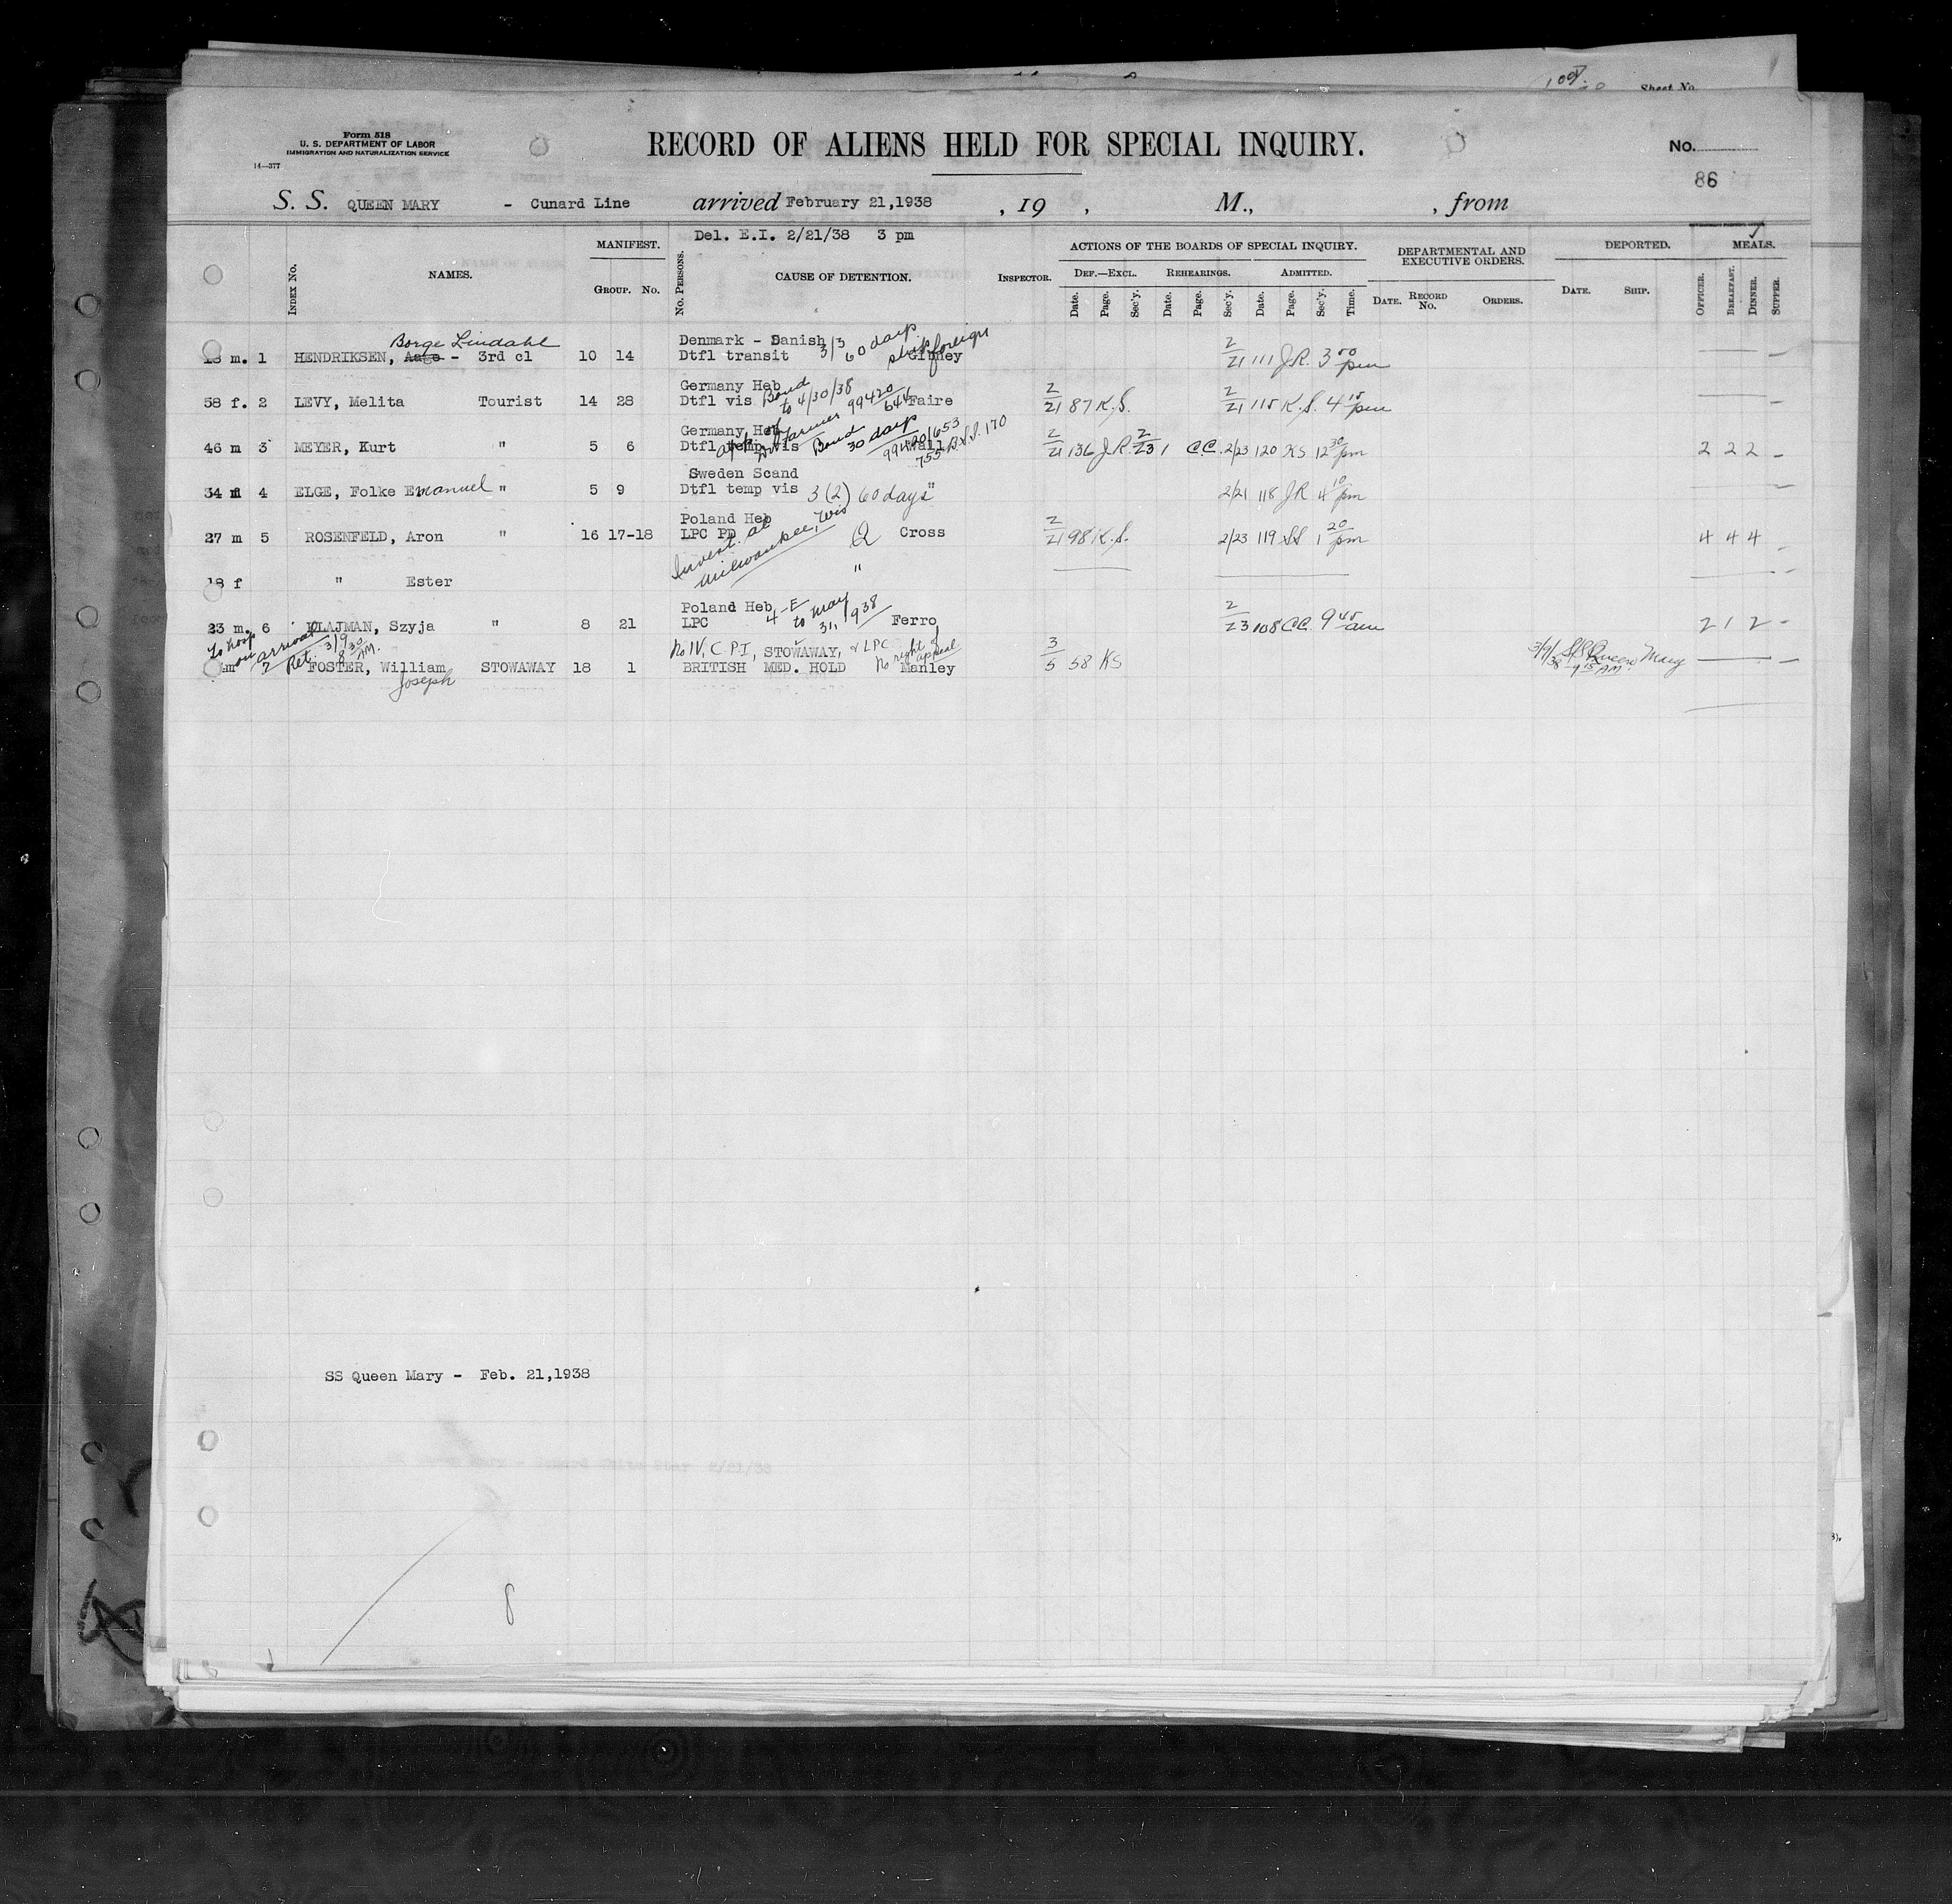 Sheet No.
Form 518
U. S. DEPARTMENT OF LABOR
IMMIGRATION AND NATURALIZATION SERVICE
14—377
RECORD OF ALIENS HELD FOR SPECIAL INQUIRY.
No.
86
S. S. QUEEN MARY - Cunard Line arrived February 21,1938 , 19 , M., , from
Del. E.I. 2/21/38 3 pm
INDEX No. NAMES. MANIFEST. GROUP. No. No. PERSONS. CAUSE OF DETENTION. INSPECTOR. ACTIONS OF THE BOARDS OF SPECIAL INQUIRY. DEPARTMENTAL AND EXECUTIVE ORDERS. DEPORTED. MEALS.
DEF.—EXCL. REHEARINGS. ADMITTED.
Date. Page. Sec'y. Date. Page. Sec'y. Date. Page. Sec'y. Time. DATE. RECORD No. ORDERS. DATE. SHIP. OFFICER. BREAKFAST. DINNER. SUPPER.
Borge Lindahl Denmark - Danish 3/3 60 days ship foreign
m. 1 HENDRIKSEN, Aage - 3rd cl 10 14 Dtfl transit 2/21 111 J.R. 3 00 pm
Germany Heb Bond to 4/30/38 99420/644
58 f. 2 LEVY, Melita Tourist 14 28 Dtfl vis Faire 2/21 87 K.S. 2/21 115 K.S. 4 15 pm
Germany Heb Bond 30 days 99420/653
46 m 3 MEYER, Kurt " 5 6 Dtfl temp vis Wall 2/21 136 J.R. 2/23 1 C.C. 2/23 120 KS 12 30 pm 2 2 2 -
755 B.S.I. 170
Sweden Scand
34 m 4 ELGE, Folke Emanuel " 5 9 Dtfl temp vis 3 (2) 60 days " 2/21 118 JR 4 10 pm
Poland Heb
27 m 5 ROSENFELD, Aron " 16 17-18 LPC PD Cross 2/21 98 K.S. 2/23 119 SS 1 20 pm 4 4 4 -
Invest. at Milwaukee, Wis
18 f " Ester "
Poland Heb 4-E to May 31, 1938
23 m. 6 KLAJMAN, Szyja " 8 21 LPC Ferro 2/23 108 CC. 9 45 am 2 1 2 -
To hosp on arrival Ret. 3/9 8 30 AM. No IV, C PI, STOWAWAY, & LPC No right of appeal
m 7 FOSTER, William Joseph STOWAWAY 18 1 BRITISH MED. HOLD Manley 3/5 58 KS 3/9/38 S/S Queen Mary 9 15 AM
SS Queen Mary - Feb. 21,1938
8